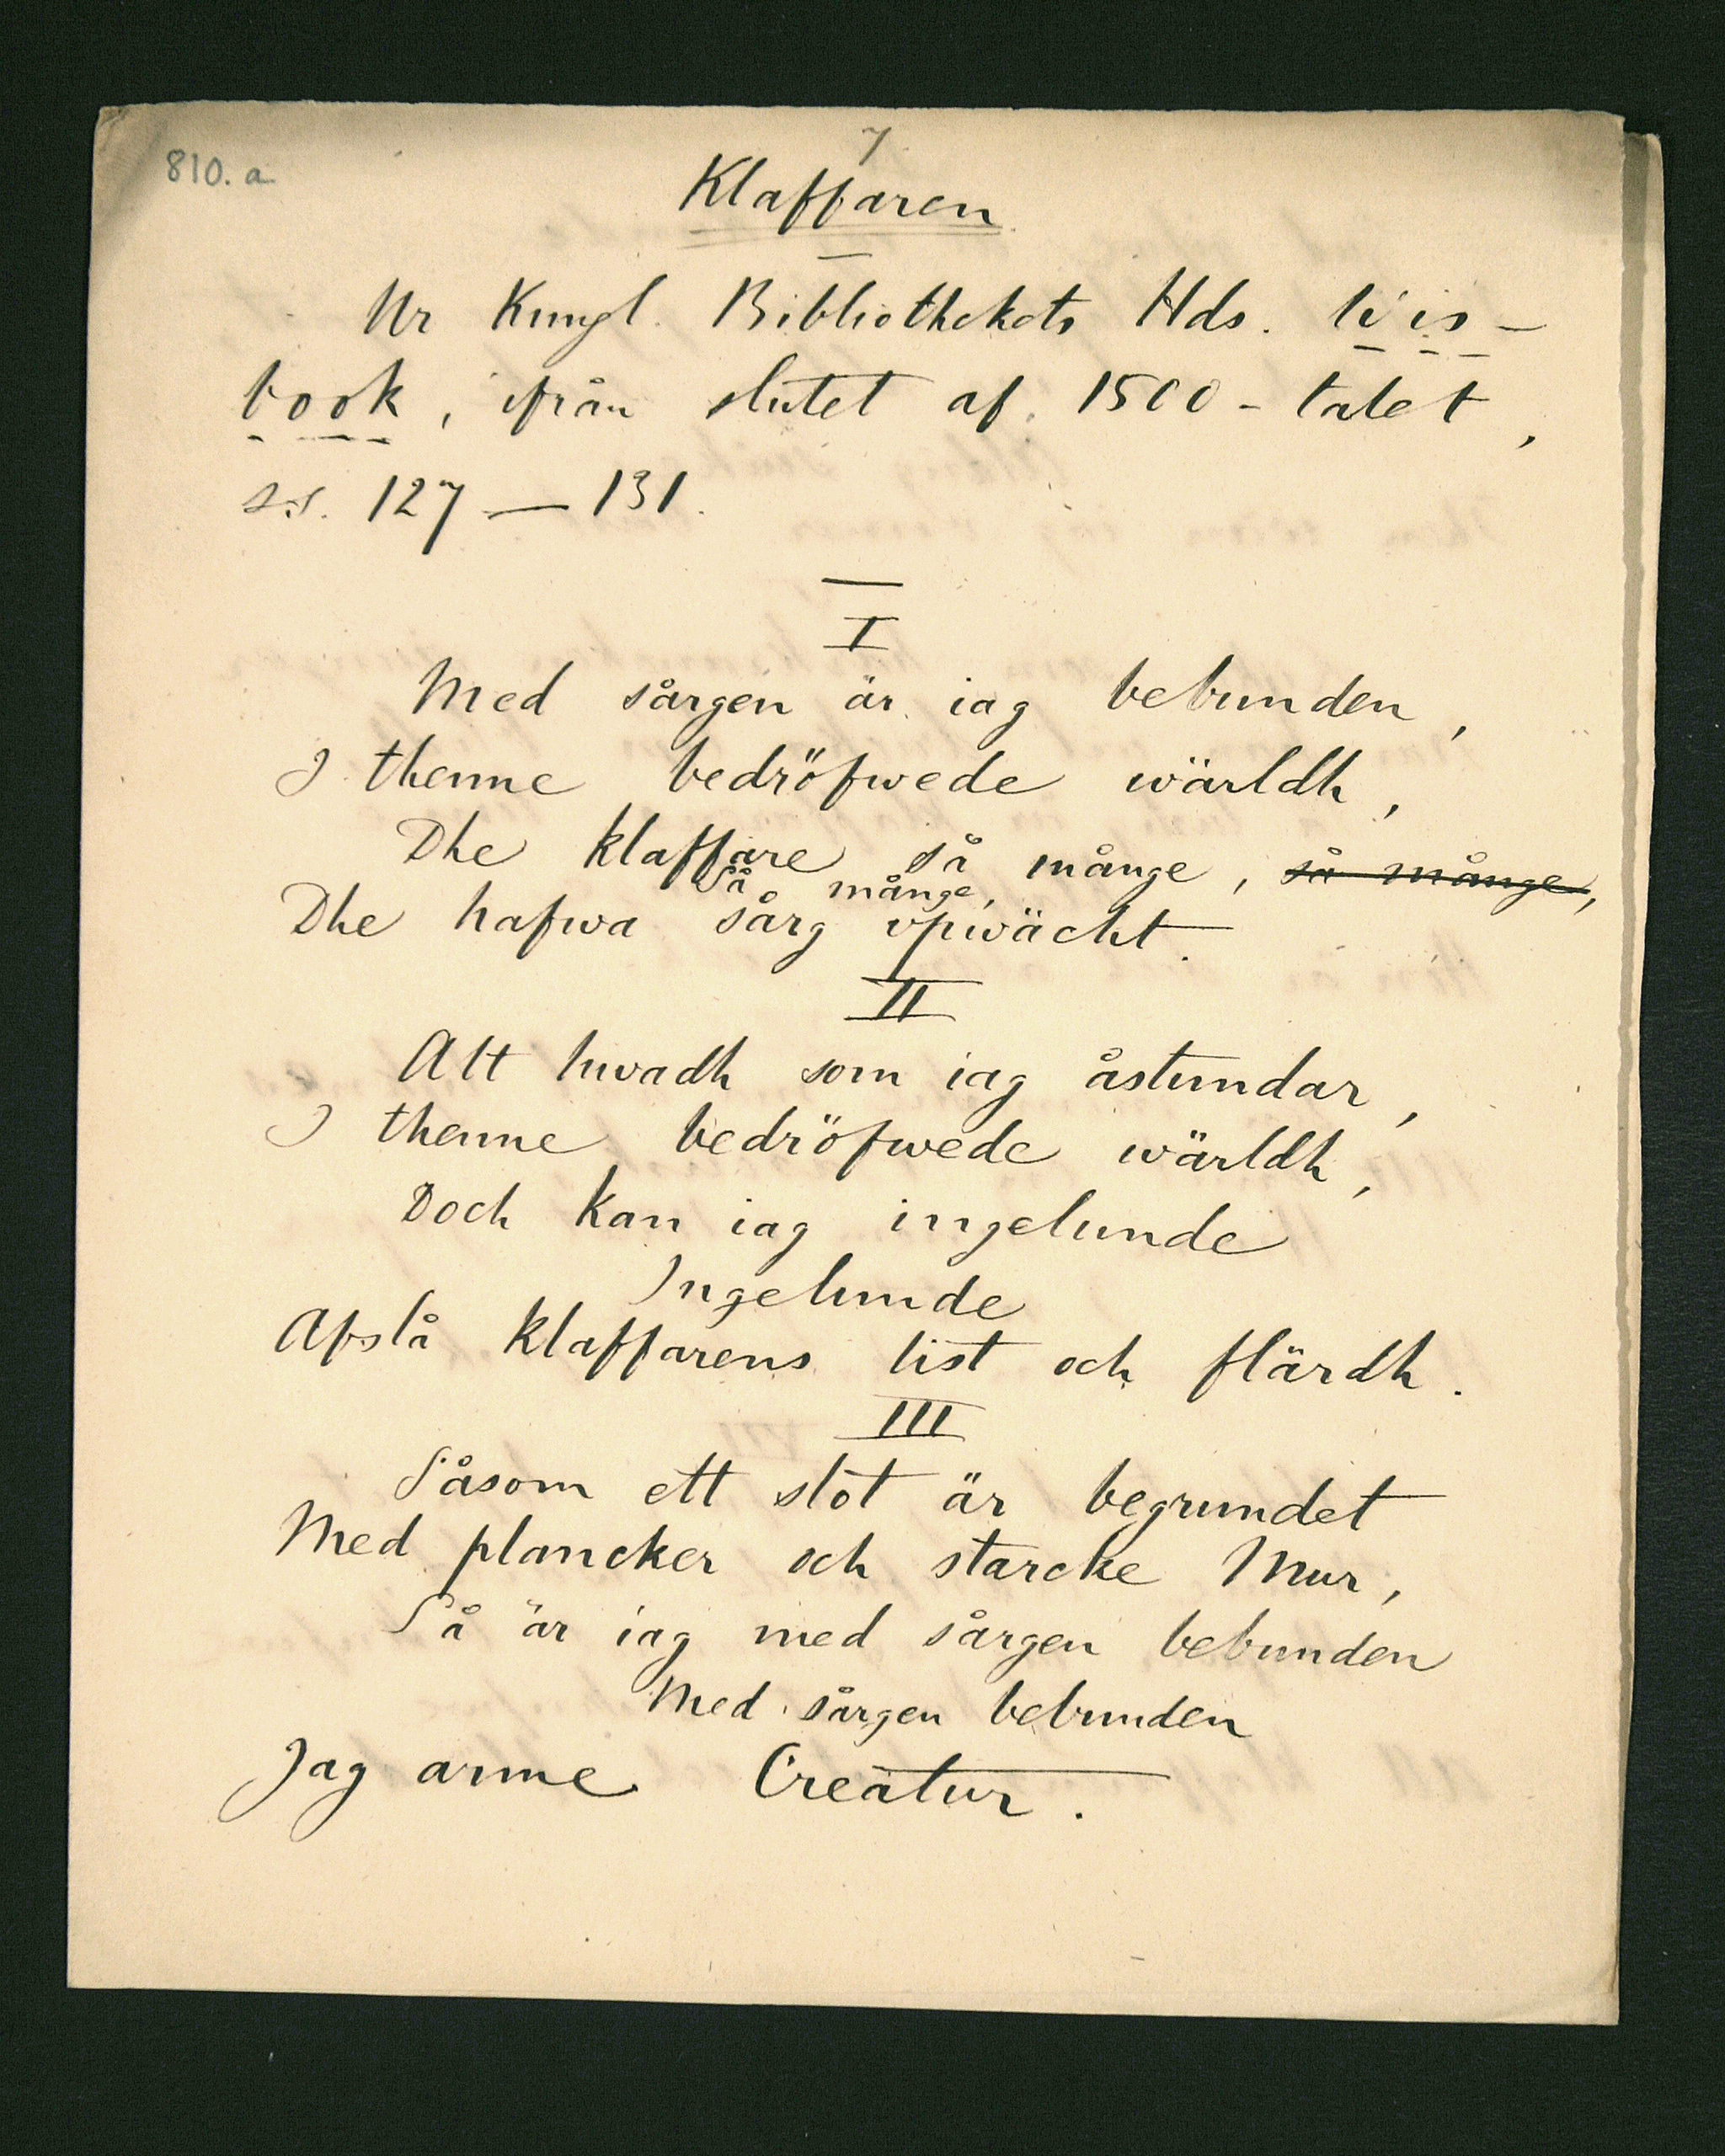 810. a
7
Klaffaren
Ur Kungl. Bibliothekets Hds. Vis-
book, ifrån slutet af 1500-talet,
ss. 127—131.
I
Med sårgen är iag bebunden,
I thenne bedröfwede wärldh,
Dhe klaffare så många, så månge,
Så månge,
Dhe hafwa sårg vpwäckt.
II
Alt hwadh som iag åstundar,
I thenne bedröfwede wärldh,
Doch kan iag ingelunde
Ingelunde
Afslå klaffarens list och flärdh.
III
Såsom ett slot är begrundet
Med plancker och starcke Mur,
Så är iag med sårgen bebunden
Med sårgen bebunden
Jag arme Creatur.